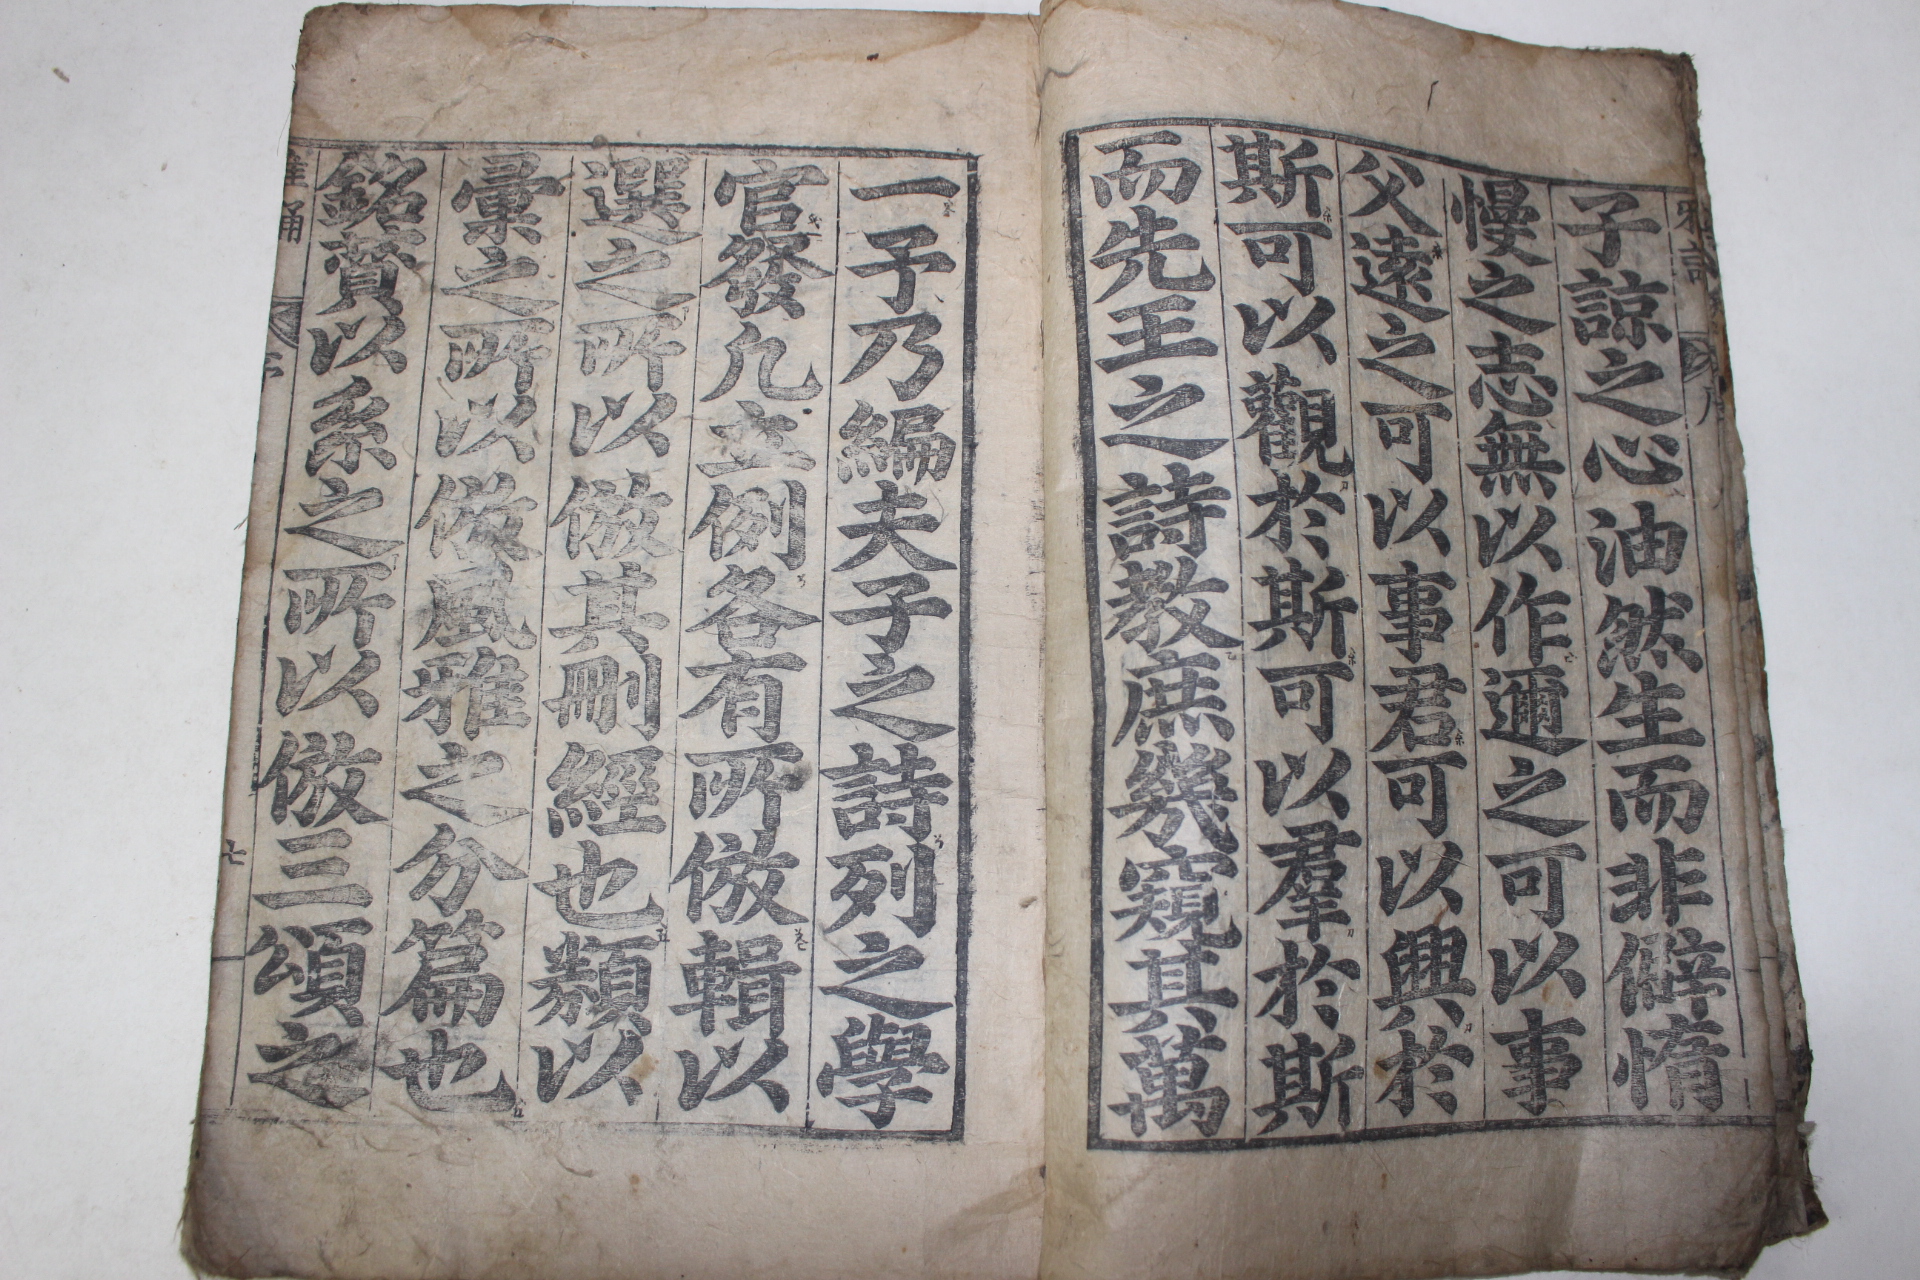 子諒之心油然生而非僻惰
慢之志無以作邇之可以事
父遠之可以事君可以興於
斯可以觀於斯可以羣於斯
而先王之詩敎庶幾窺其萬
一予乃編夫子之詩列之學
官發凡立例各有所倣輯以
選之所以倣其刪經也類以
彙之所以倣風雅之分篇也
銘賛以系之所以倣三頌之
雅誦
七